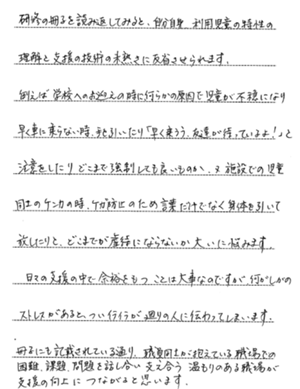 研修の冊子を読み返してみると、自分自身、利用児童の特性の
理解と支援の技術の未熟さに反省させられます。
例えば学校へのお迎えの時に何らかの原因で児童が不穏になり
早く車に乗らない時、引いたり「早く乗ろう、友達が待っているよ!」と
注意をしたりどこまで強制しても良いものか、又施設での児童
同士のケンカの時、ケガ防止のため言葉だけでなく身体も引いて
放したりと、どこまでが虐待にならないか大いに悩みます。
日々の支援の中で余裕をもつことは大事なのですが何がしかの
ストレスがあると、ついイライラが周りの人に伝わってしまいます。
冊子にも記載されている通り、職員同士が抱えている職場での
困難、課題、問題を話し合い支え合う温もりのある職場が
支援の向上につながると思います。